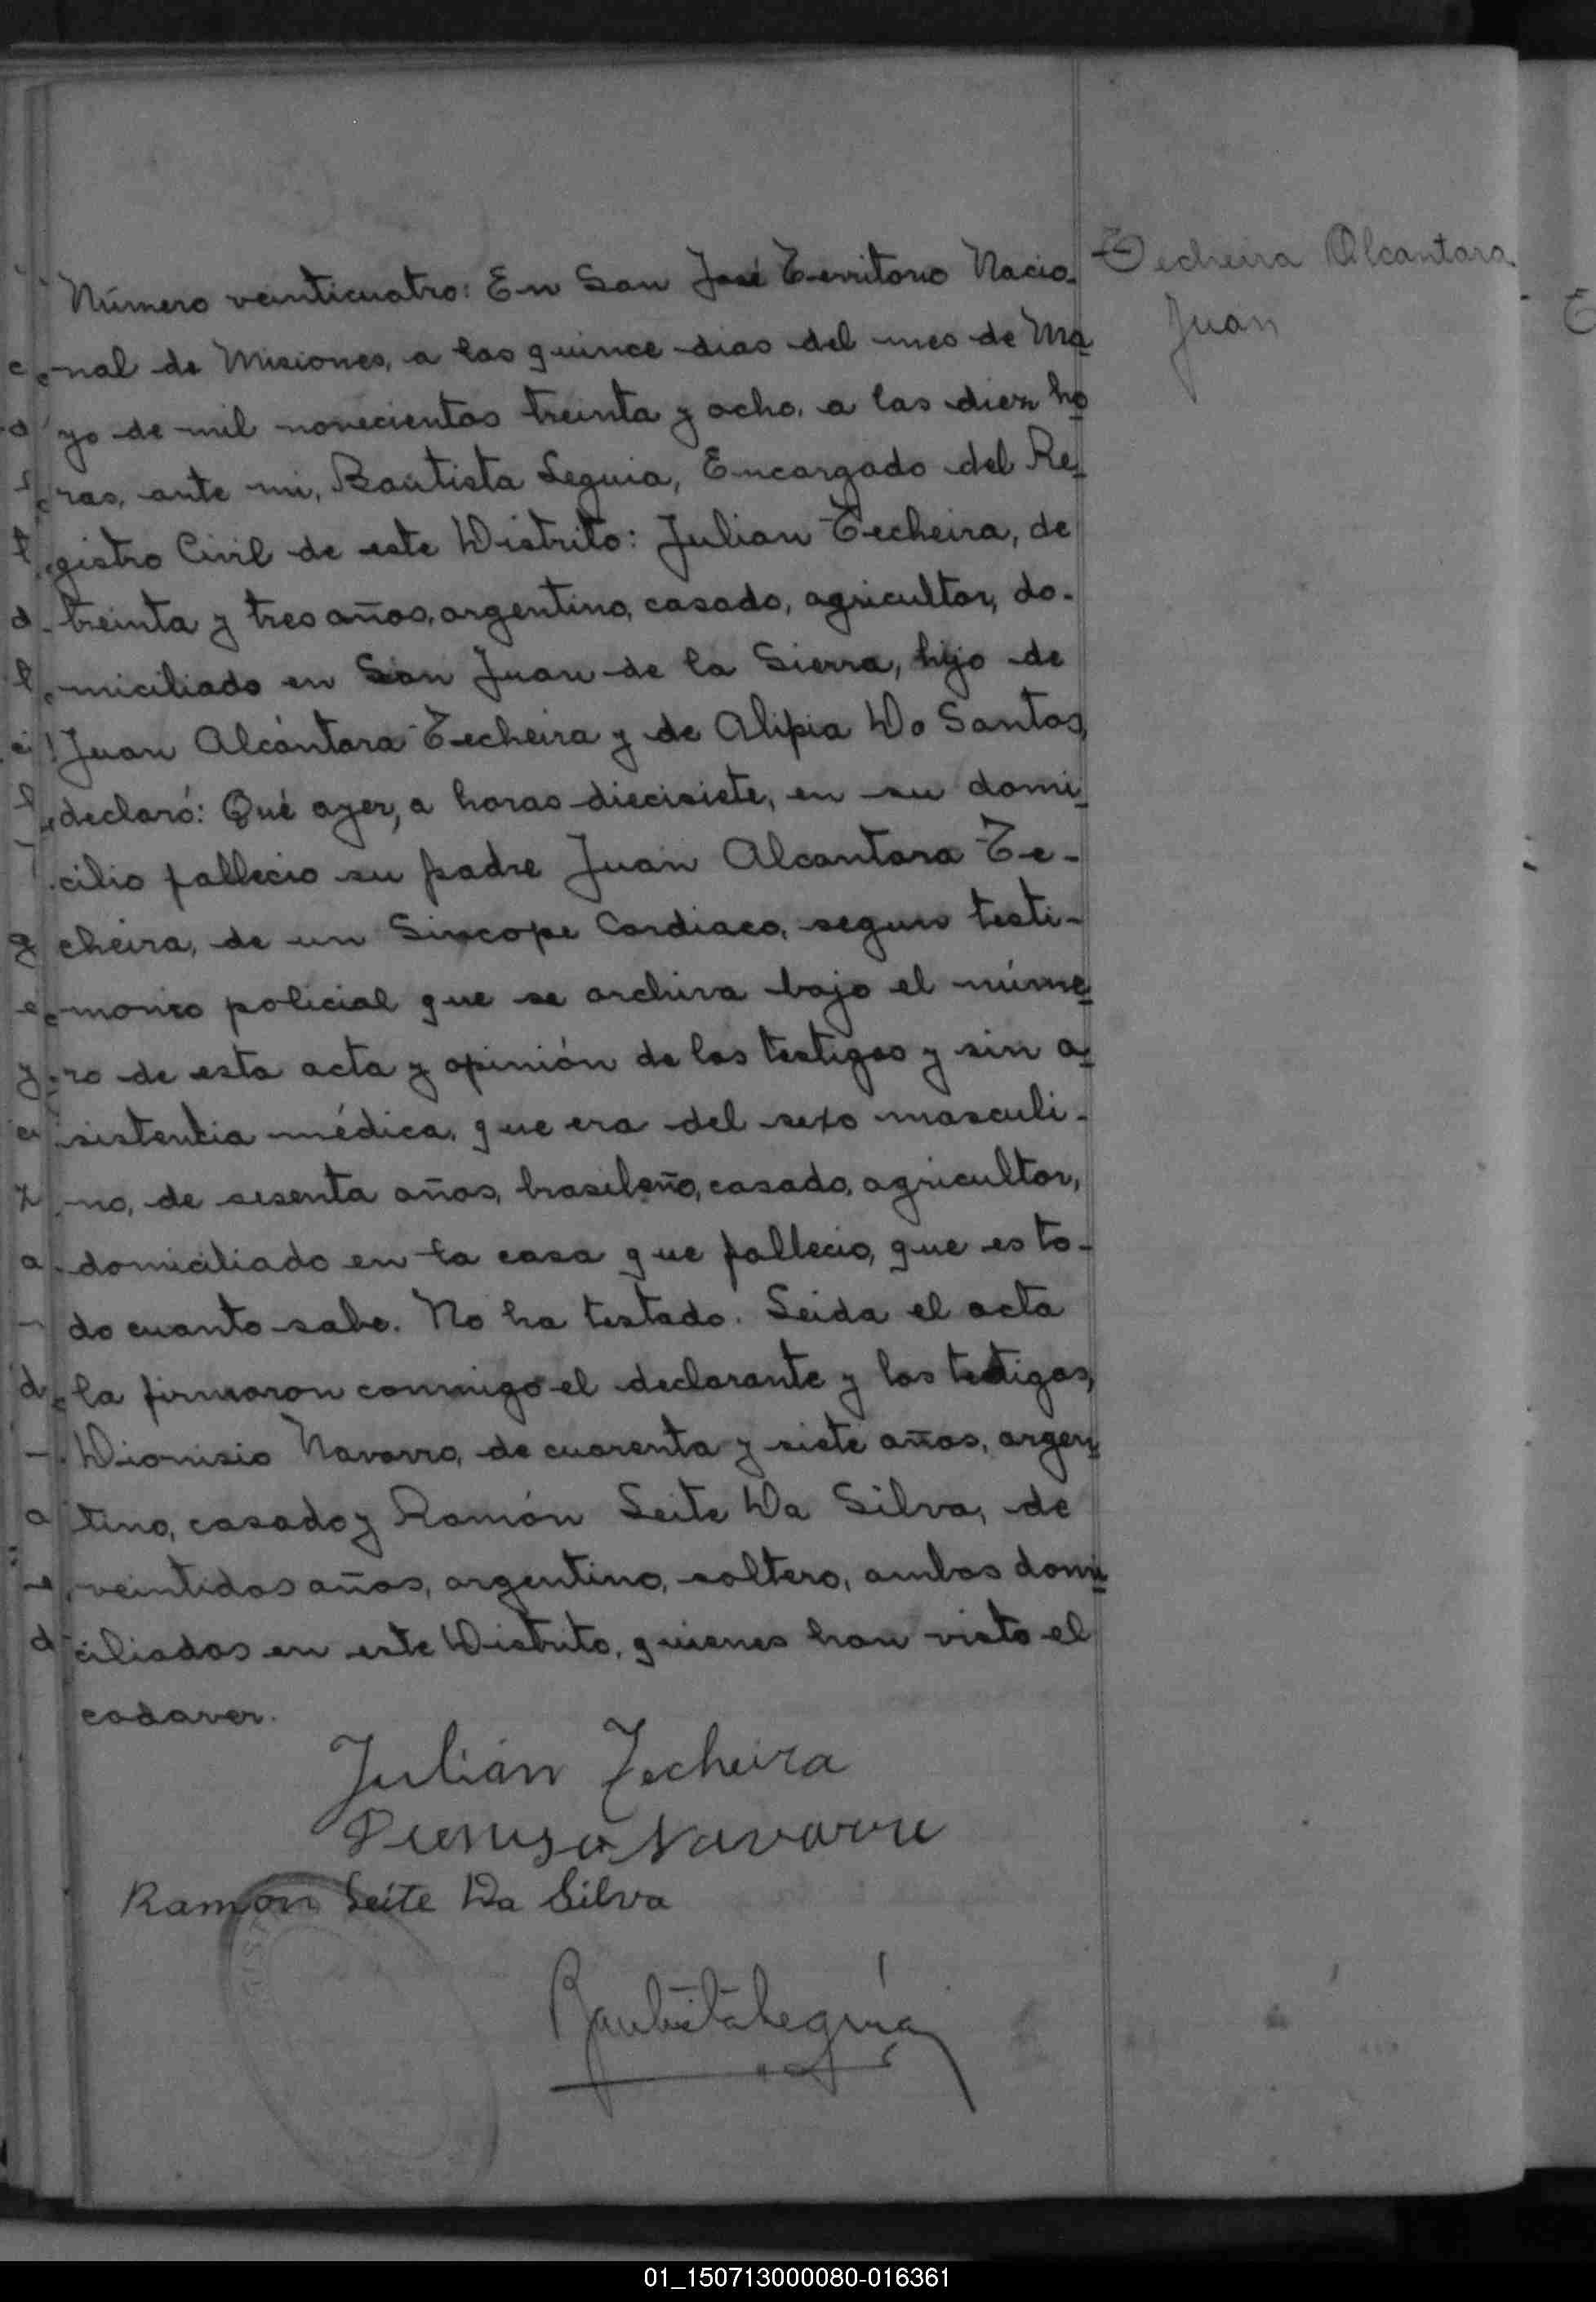 Techeira Alcantara
Juan
Número veinticuatro: En San José Territorio Nacio-
nal de Misiones, a los quince dias del mes de Ma
yo de mil novecientos treinta y ocho, a las diez ho
ras, ante mi, Bautista Leguia, Encargado del Re-
gistro Civil de este Distrito: Julian Techeira, de
treinta y tres años, argentino, casado, agricultor, do-
miciliado en San Juan de la Sierra, hijo de
Juan Alcántara Techeira y de Alipia Do Santos,
declaró: Qué ayer, a horas diecisiete, en su domi-
cilio fallecio su padre Juan Alcantara Te-
cheira, de un Sincope Cardiaco, segun testi-
monio policial que se archiva bajo el núme
ro de esta acta y opinión de los testigos y sin a
sistencia médica, que era del sexo masculi-
no, de sesenta años, brasileño, casado, agricultor,
domiciliado en la casa que fallecio, que es to-
do cuanto sabe. No ha testado. Leida el acta
la firmaron conmigo el declarante y los testigos,
Dionisio Navarro, de cuarenta y siete años, argen
tino, casado y Ramón Leite Da Silva, de
veintidos años, argentino, soltero, ambos domi
ciliados en este Distrito, quienes han visto el
cadaver.
Julián Techeira
Navarro
Ramon Leite Da Silva
Bautista Leguía
01_150713000080-016361